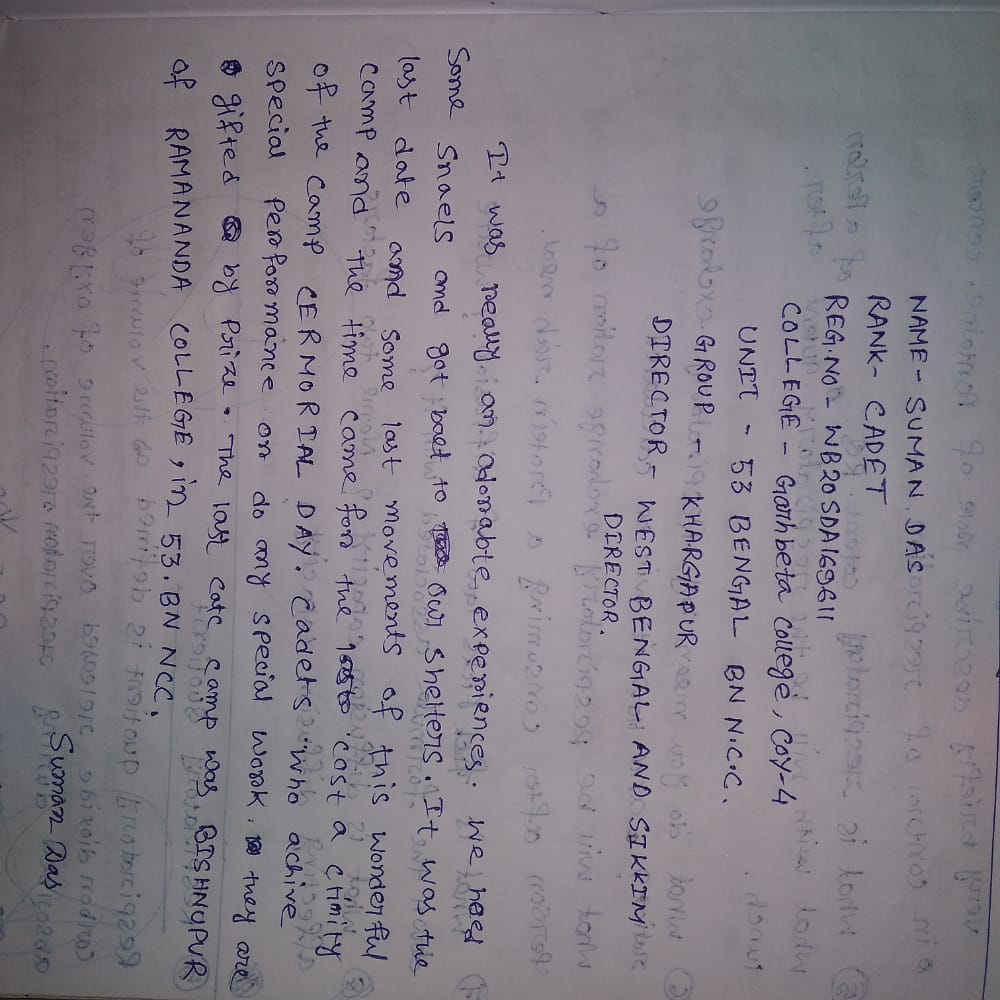 NAME - SUMAN DAS
RANK - CADET
REG.NO - WB20SDA169611
COLLEGE - Garhbeta College, COY-4
UNIT - 53 BENGAL BN N.C.C.
GROUP - KHARGAPUR
DIRECTOR - WEST BENGAL AND SIKKIM
DIRECTOR.
It was really an adorable experiences. We heed
Some Snaels and got baet to our shelters. It was the
last date and some last movements of this wonderful
camp and the time came for the cast a ctimity
of the camp CERMORIAL DAY. Cadets who achive
special performance or do any special work. they are
gifted by Prize. The last catc camp was BISHNUPUR
of RAMANANDA COLLEGE, in 53.BN NCC.
Suman Das